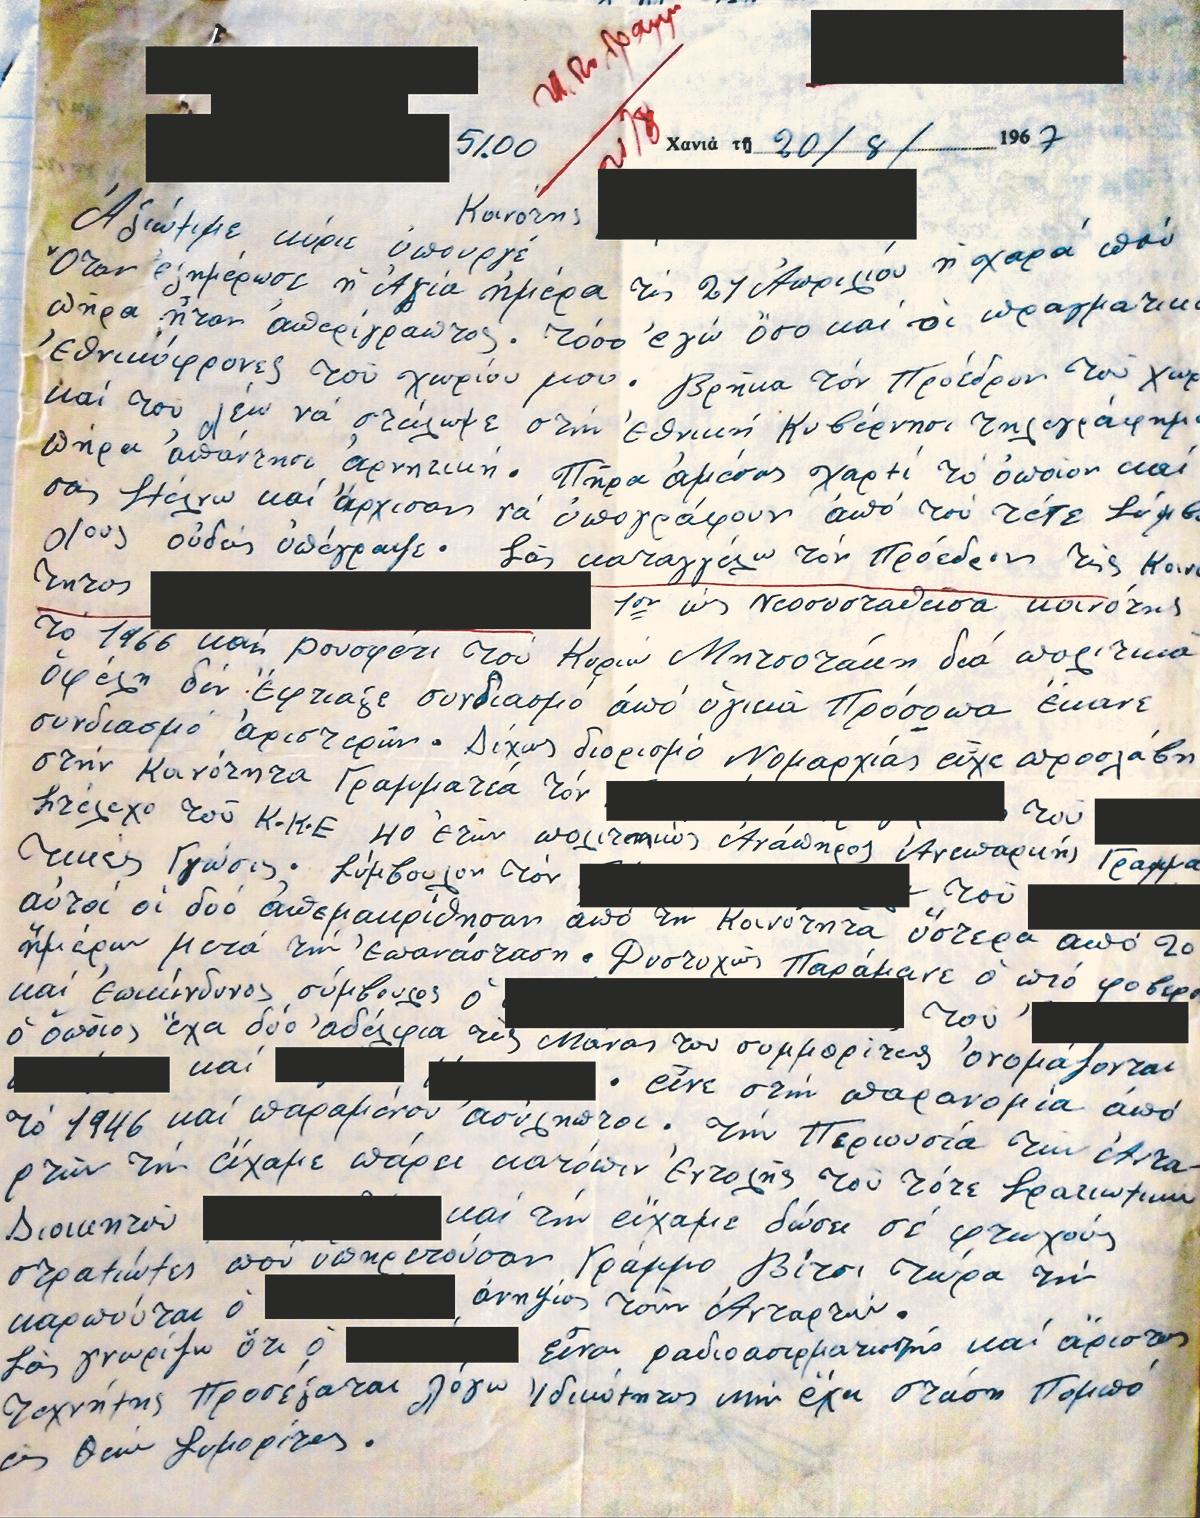 5100
Χανιὰ τῇ 20/8/ 1967
Κοινότης
Ἀξιώτιμε κύριε ὑπουργέ
Ὅταν ἐξημέρωσε ἡ Ἁγία ἡμέρα τὶς 21 Ἀπριλίου ἡ χαρά ποὺ
πῆρα ἦταν ἀπερίγραπτος. τόσο ἐγώ ὅσο καὶ οἱ πραγματικ
ἐθνικόφρονες τοῦ χωρίου μου. Βρῆκα τόν Πρόεδρον τοῦ χωρ
καί τοῦ λέω νά στείλωμε στήν Ἐθνική Κυβέρνησι τηλεγράφημ
πῆρα ἀπάντησι ἀρνητική. Πῆρα ἀμέσως χαρτί τό ὁποῖον καί
σας Στέλνω καί ἄρχισαν νά ὑπογράφουν ἀπό τοῦ τότε Συμβ
λους οὐδείς ὑπέγραψε. Σᾶς καταγγέλω τόν Πρόεδρον τῆς Κοιν
τητος 1ον ὡς Νεοσυσταθεῖσα κοινότης
τό 1966 καί ρουσφέτι τοῦ Κυρίου Μητσοτάκη διά πολιτικά
ὀφέλη δέν ἔφτιαξε συνδιασμό ἀπό ὑγιικά Πρόσοπα ἔκανε
συνδιασμό ἀριστερῶν. Δίχως διορισμό Νομαρχίας εἶχε προσλάβη
στήν Κοινότητα Γραμματέα τόν τοῦ
Στέλεχο τοῦ Κ.Κ.Ε 40 ἐτῶν πολιτικῶς Ἀνάπηρος Ἀνεπαρκής Γραμμα
τικές Γνώσις. Σύμβουλον τόν τοῦ
αὐτοί οἱ δυό ἀπεμακρίθησαν ἀπό τη Κοινότητα ὕστερα ἀπό 20
ἡμέρων μετά τήν Ἐπανάσταση. Δυστυχῶς Παράμεινε ὁ πιό φοβερο
καί ἐπικίνδυνος σύμβουλος ὁ τοῦ
ὁ ὁποῖος ἔχει δύο ἀδέλφια τῆς Μάνας του συμμορίτες ὀνομάζονται
καί . εἶνε στήν παρανομία ἀπό
τό 1946 καί παραμένου ἀσύλληπτοι. τήν Περιουσία τῶν Ἀντα-
ρτῶν τήν εἴχαμε πάρει κατόπιν Ἐντολῆς τοῦ τότε Σρατιωτικου
Διοικητοῦ καί τήν εἴχαμε δώσει σέ φτωχούς
στρατιώτες ποὺ ὑπηρετούσαν Γράμμο Βίτσι τώρα τήν
καρποῦται ὁ ἀνηψιός τῶν Ἀνταρτῶν.
Σᾶς γνωρίζω ὅτι ὁ εἶναι ραδιοασιρματιστής καί ἄριστος
τεχνήτης Προσέξαται λόγω Ἰδικότητος μήν ἔχει στάση Πομπό
Συμορίτες.